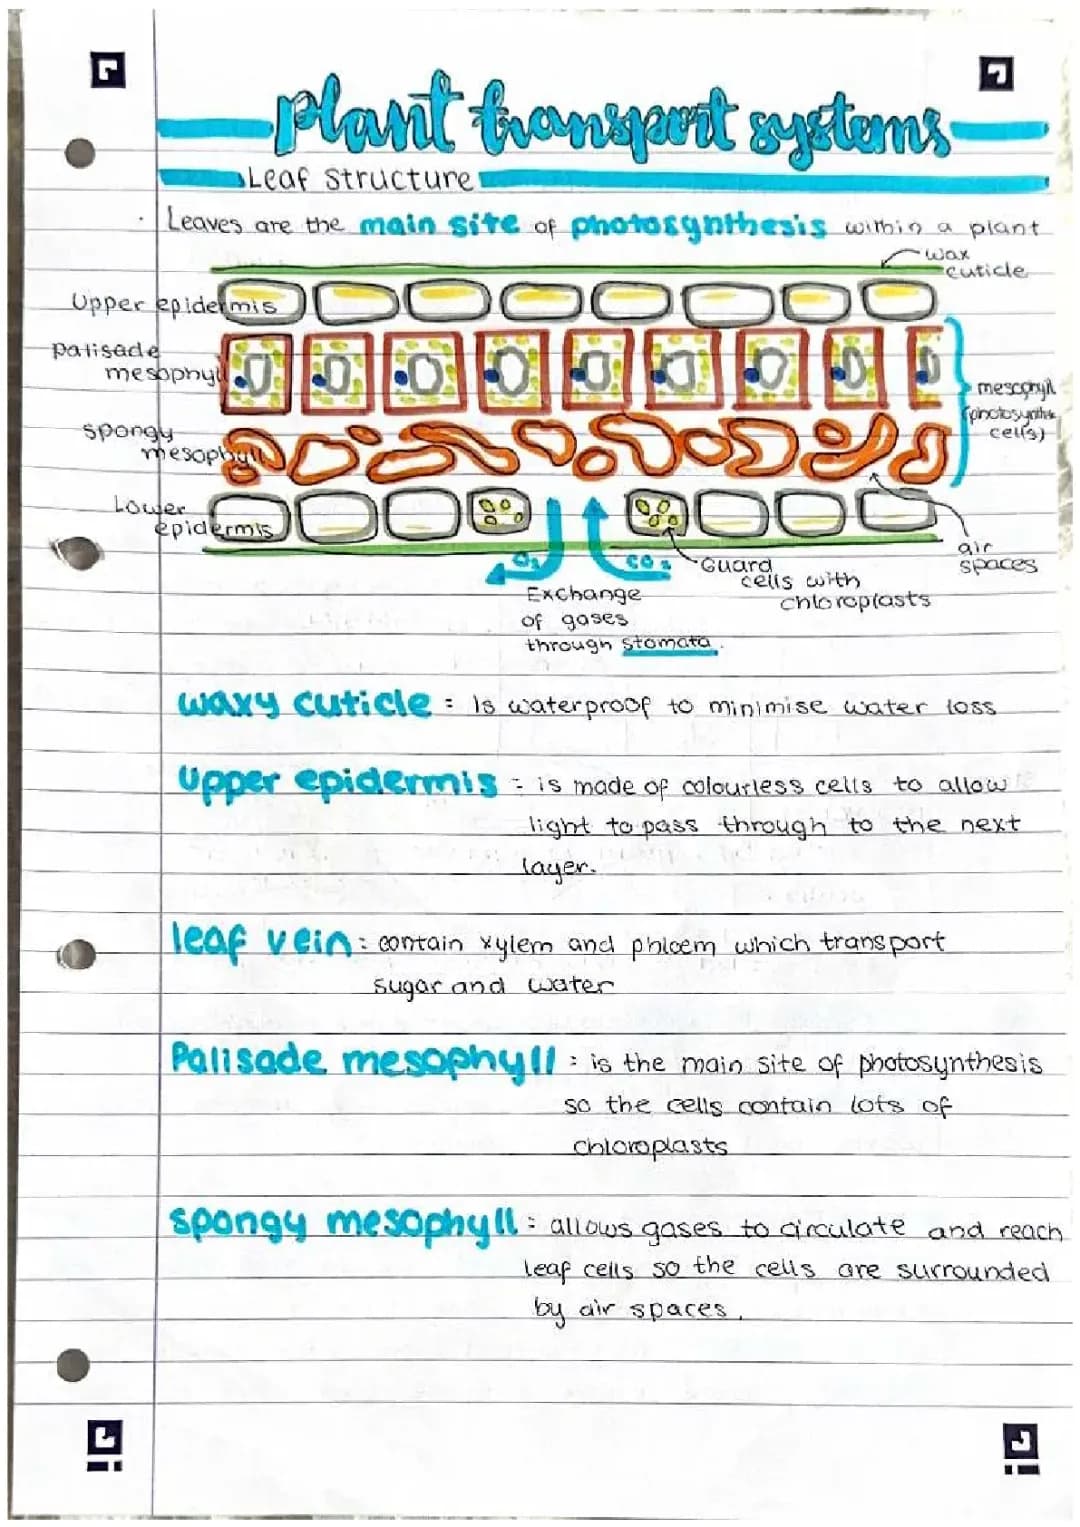 Plant transport systems
Leaf structure
Leaves are the main site of photosynthesis within a plant
wax
cuticle
Upper epidermis
palisade
mesophyll
mesophyll
(photosynthe
cells)
spongy
mesophyll
Lower
epidermis
O₂
CO₂
Guard
cells with
chloroplasts
air
spaces
Exchange
of gases
through stomata.
waxy cuticle : Is waterproof to minimise water loss
Upper epidermis - is made of colourless cells to allow
light to pass through to the next
layer.
leaf vein : contain xylem and phloem which transport
sugar and water
Palisade mesophyll : is the main site of photosynthesis
so the cells contain lots of
chloroplasts
spongy mesophyll : allows gases to circulate and reach
leaf cells so the cells are surrounded
by air spaces.